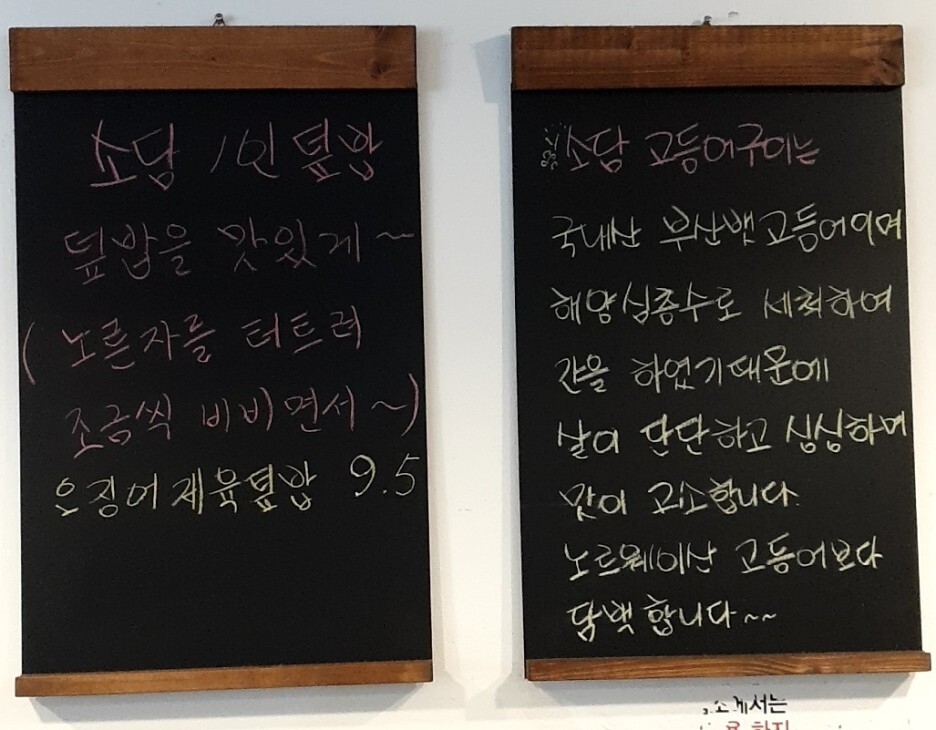 소담 1인 덮밥
덮밥을 맛있게~
(노른자를 터트려
조금씩 비비면서~)
오징어제육덮밥 9.5
소담 고등어구이는
국내산 부산뱃고등어이며
해양심층수로 세척하여
간을 하였기때문에
살이 단단하고 심심하며
맛이 고소합니다.
노르웨이산 고등어보다
담백합니다~~